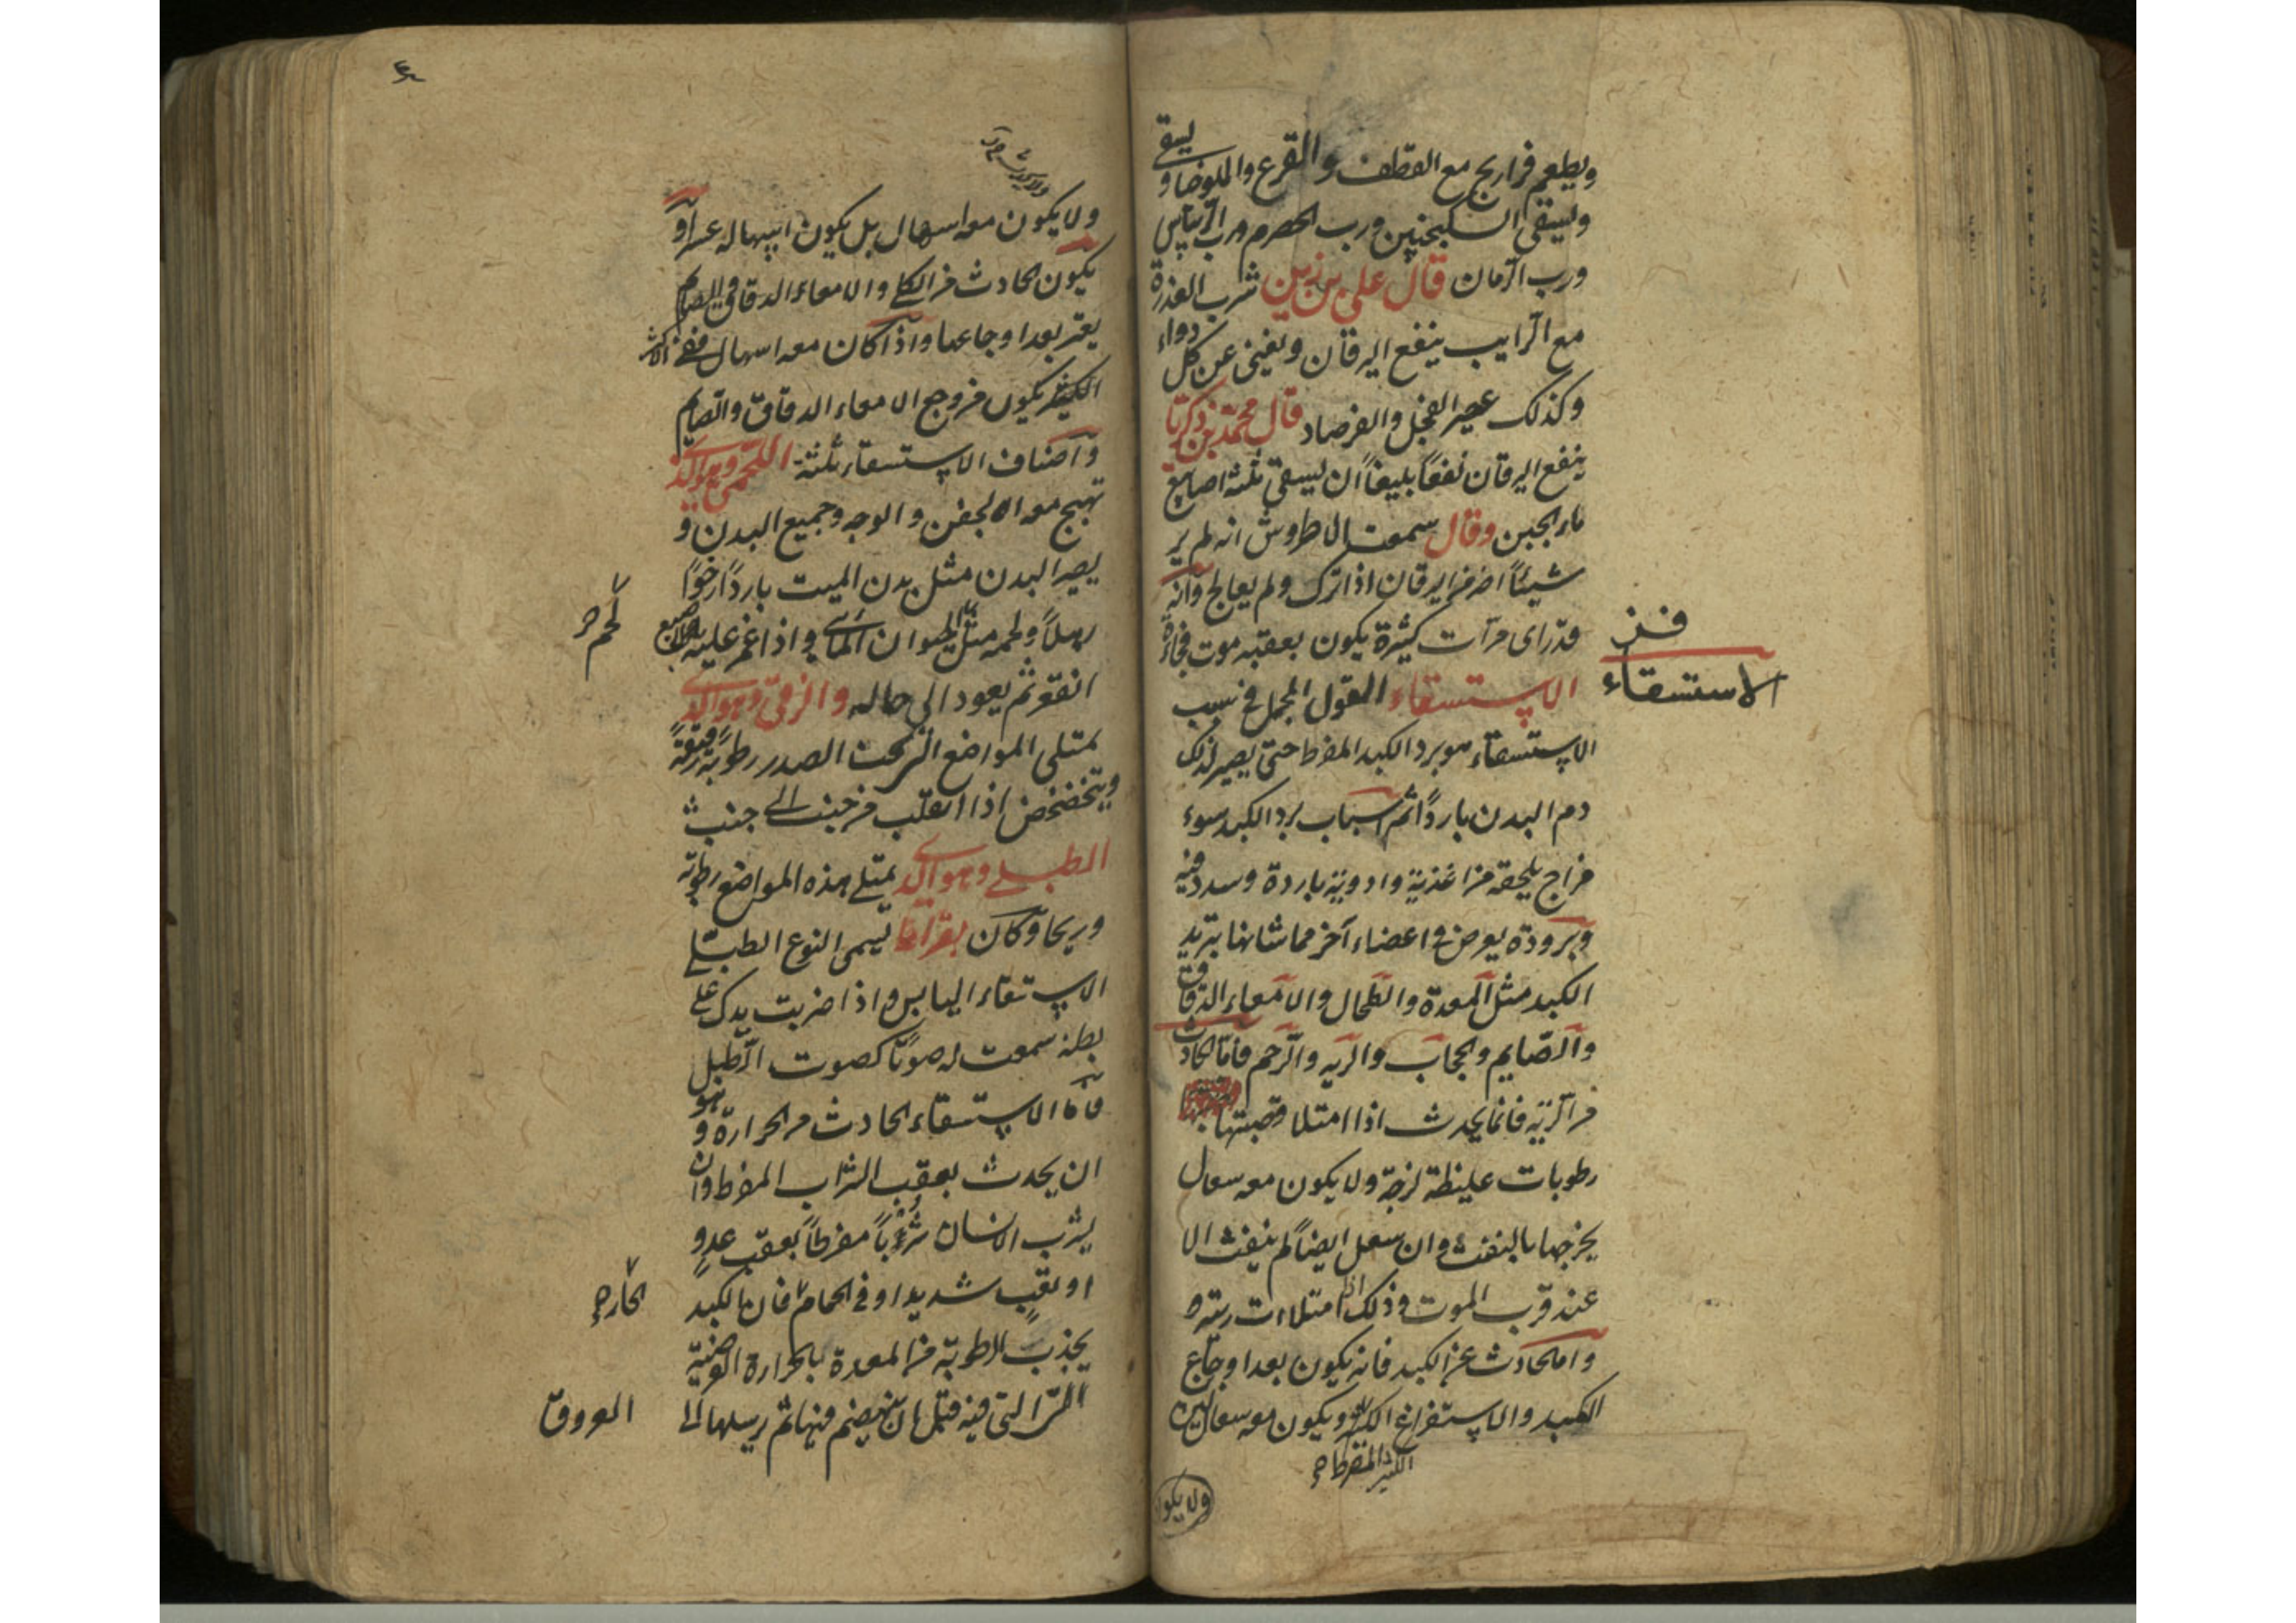 ويطعم فراريج مع القطف والقرع والملوخيا و
يسقى
ويسقى السكنجبين ورب الحصرم ورب الريباس
ورب الرمان قال علي بن زين شرب العذرة
مع الرايب ينفع اليرقان ويغني عن كل دواء
وكذلك عصير الفجل والفرصاد قال محمد بن زكريا
ينفع اليرقان نفعا بليغا ان يسقى ثلثة اصابع
ماء الجبن وقال سمعت الاطروش انه لم ير
شيئا اضر من اليرقان اذا ترك ولم يعالج وانه
قد راى مرات كثيرة يكون بعقبه موت فجاءة
فى
الاستسقاء
الاستسقاء القول المجمل في سبب
الاستسقاء هو برد الكبد المفرط حتى يصير لذلك
دم البدن باردا ثم اسباب برد الكبد سوء
مزاج يلحقه من اغذية وادوية باردة وسدد فيه
وبرودة يعرض في اعضاء آخر مما شانها تبريد
الكبد مثل المعدة والطحال والامعاء الدقاق
والصايم والحجاب والريه والرحم فاما الحادث
من الرية فانما يحدث اذا امتلا قصبتها
رطوبات غليظة لزجة ولا يكون معه سعال
يخرجها بالنفث وان سعل ايضا لم ينفث الا
عند قرب الموت وذلك اذا امتلات ريته
واما الحادث عن الكبد فانه يكون بعد اوجاع
الكبد والاستفراغ الكثير ويكون معه سعال
الكثير المفرط
ولا يكو
ولا يكون معه اسهال بل يكون اسهاله عسرا و
يكون الحادث من الكلى والامعاء الدقاق والصايم
يعتر بعد اوجاعها واذا كان معه اسهال ففي الاكثر
الكثير يكون من وجع الامعاء الدقاق والصايم
واصناف الاستسقاء ثلثة اللحمي وهو الذي
تهيج معه الجفن والوجه وجميع البدن و
يصير البدن مثل بدن الميت باردا رخوا
رهلا ولحمه مثل الحيوان المائي واذا غمز عليه اصبع
لحم
انقعر ثم يعود الى حاله والزقي وهو الذي
يمتلي المواضع التي تحت الصدر رطوبة رقيقة
ويتخضخض اذا انقلب من جنب الى جنب
الطبلي وهو الذي يمتلي هذه المواضع رطوبة
وريحا وكان بقراط يسمى النوع الطبلي
الاستسقاء اليابس واذا ضربت يدك على
بطنه سمعت له صوتا كصوت الطبل
فاما الاستسقاء الحادث من الحرارة وهو
ان يحدث بعقب الشراب المفرط وان
يشرب الانسان شربا مفرطا بعقب عدو
او تعب شديد او في الحمام فان الكبد
الحار
يجذب الرطوبة من المعدة بالحرارة العرضية
التي فيه قبل ان ينهضم فيها ثم يرسلها الى
العروق